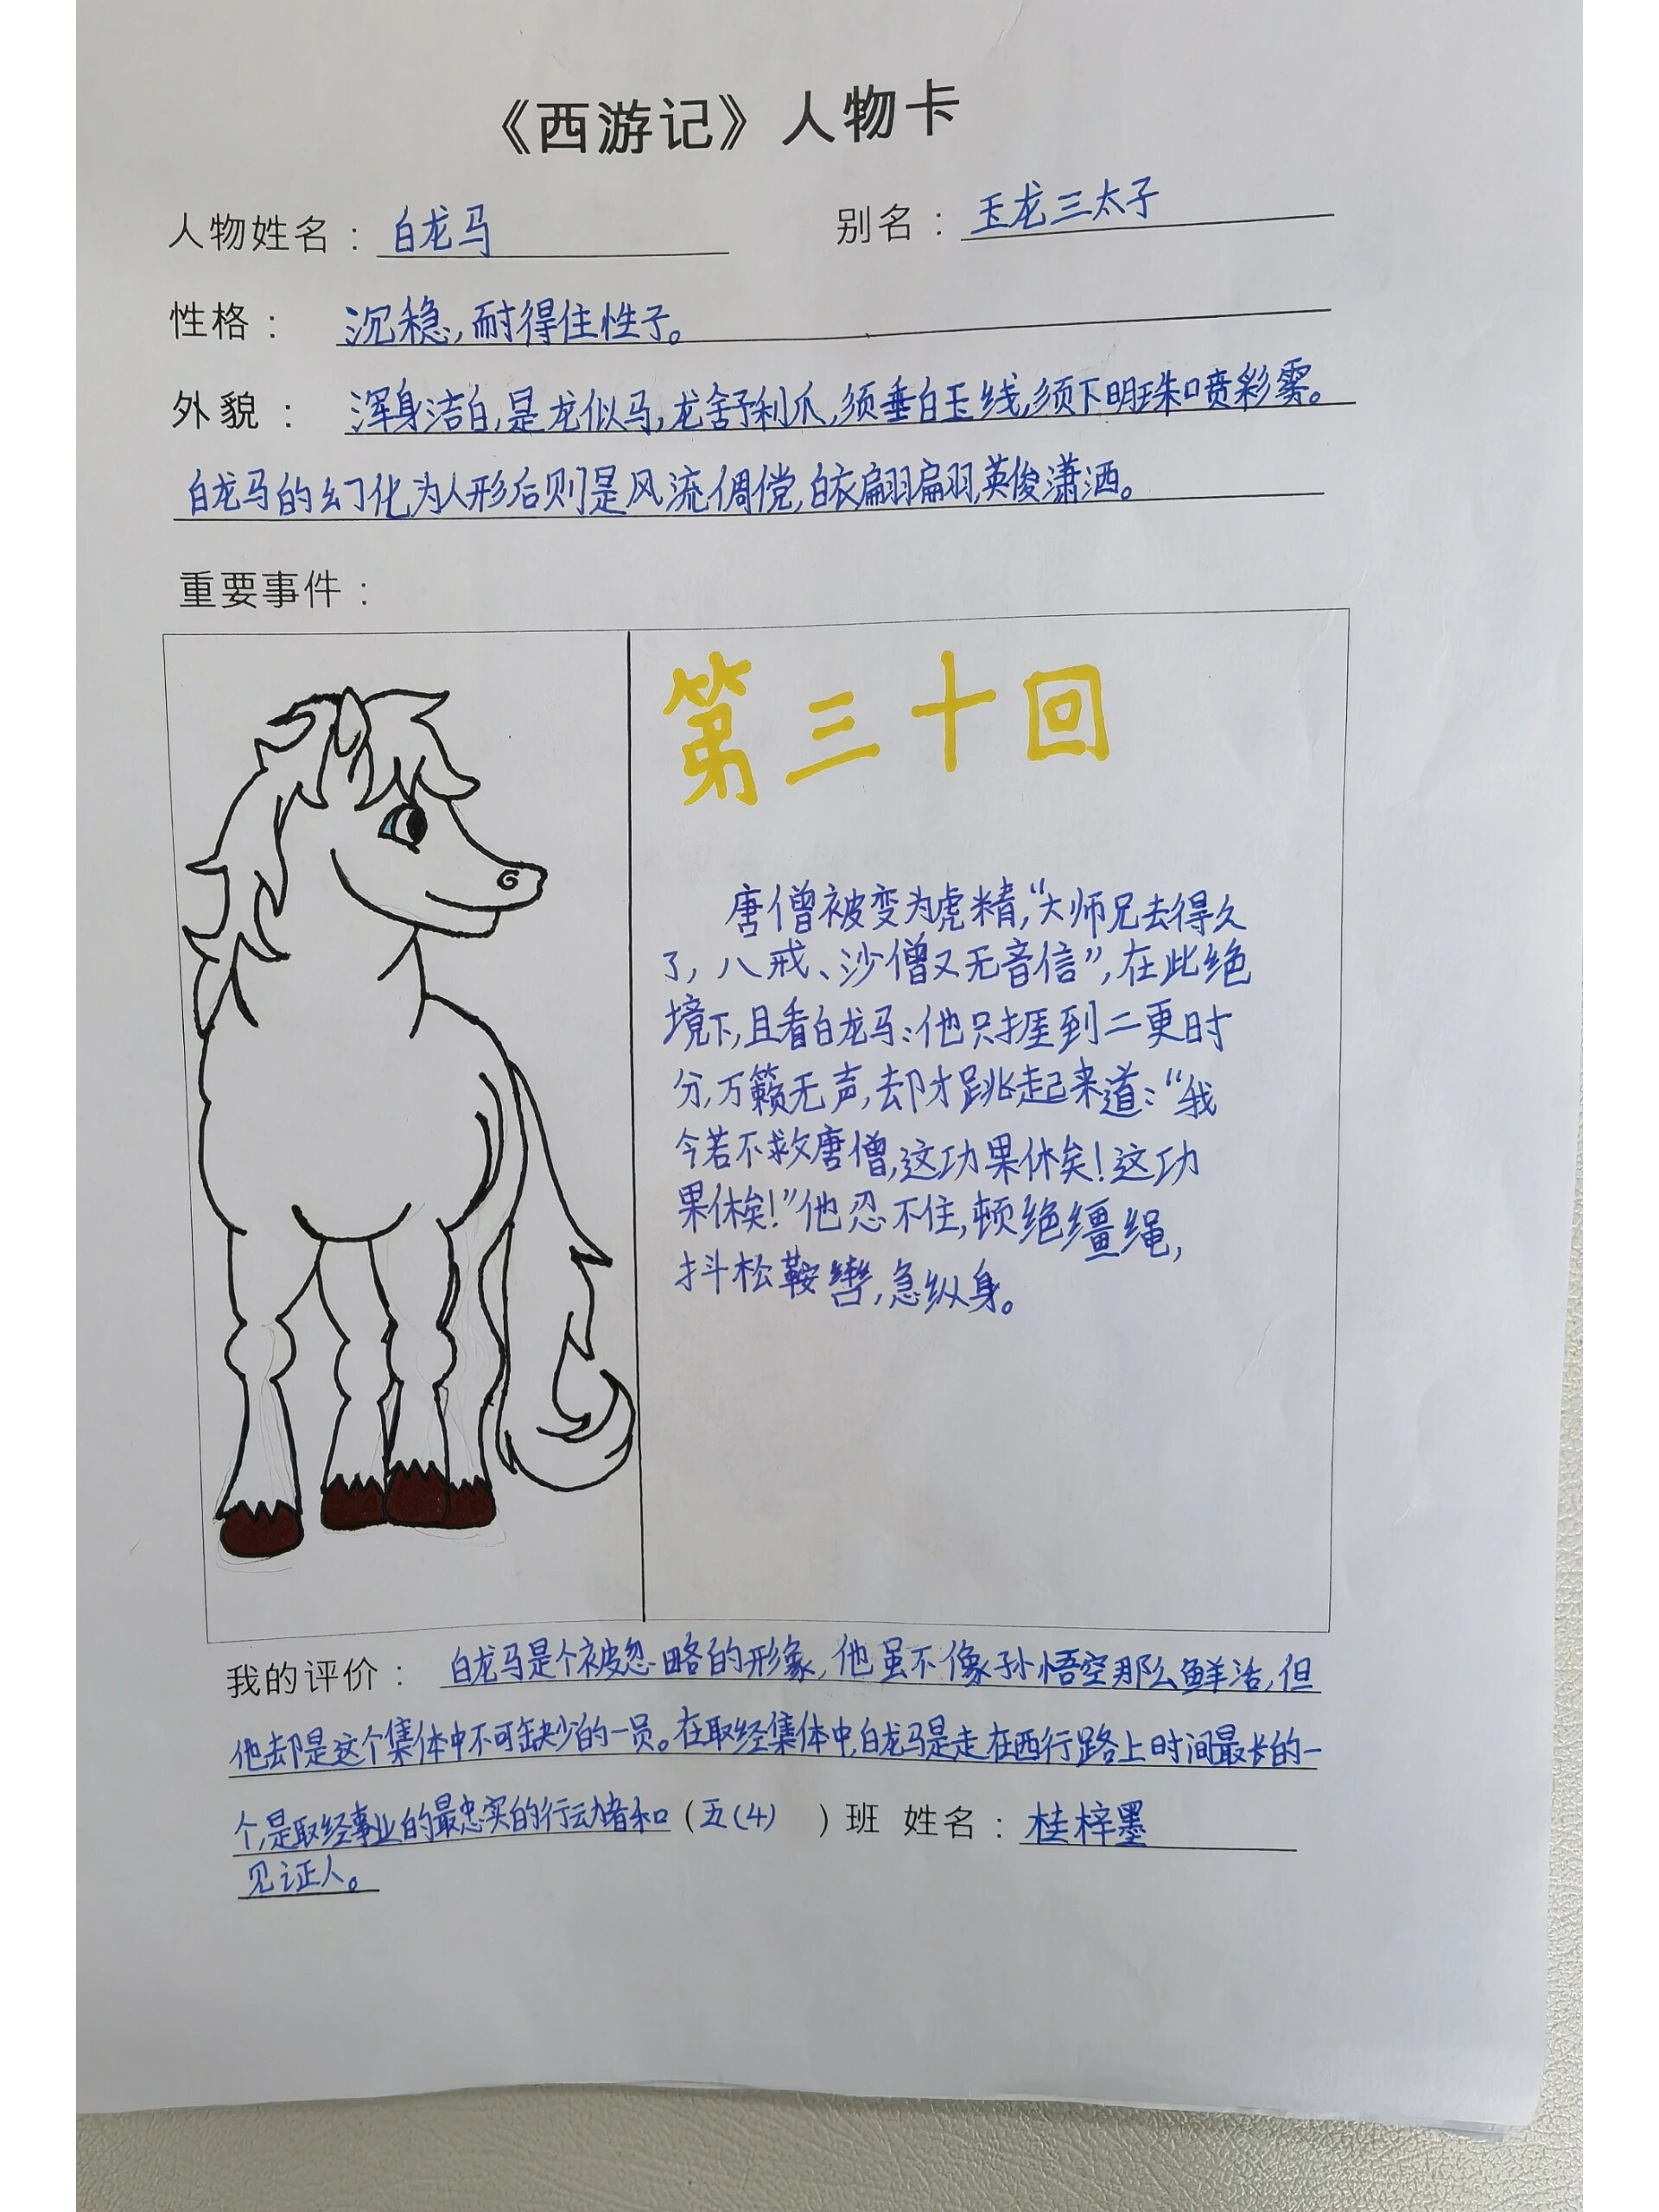 《西游记》人物卡
人物姓名：白龙马 别名：玉龙三太子
性格：沉稳，耐得住性子。
外貌：浑身洁白，是龙似马，龙舒利爪，须垂白玉线，须下明珠喷彩雾。
白龙马的幻化为人形后则是风流倜傥，白衣翩翩，英俊潇洒。
重要事件：
第三十回
唐僧被变为虎精，“大师兄去得久
了，八戒、沙僧又无音信”，在此绝
境下，且看白龙马：他只捱到二更时
分，万籁无声，却才跳起来道：“我
今若不救唐僧，这功果休矣！这功
果休矣！”他忍不住，顿绝缰绳，
抖松鞍辔，急纵身。
我的评价：白龙马是个被忽略的形象，他虽不像孙悟空那么鲜活，但
他却是这个集体中不可缺少的一员。在取经集体中，白龙马是走在西行路上时间最长的一
个，是取经事业的最忠实的行动者和（五（4） ）班 姓名：桂梓墨
见证人。